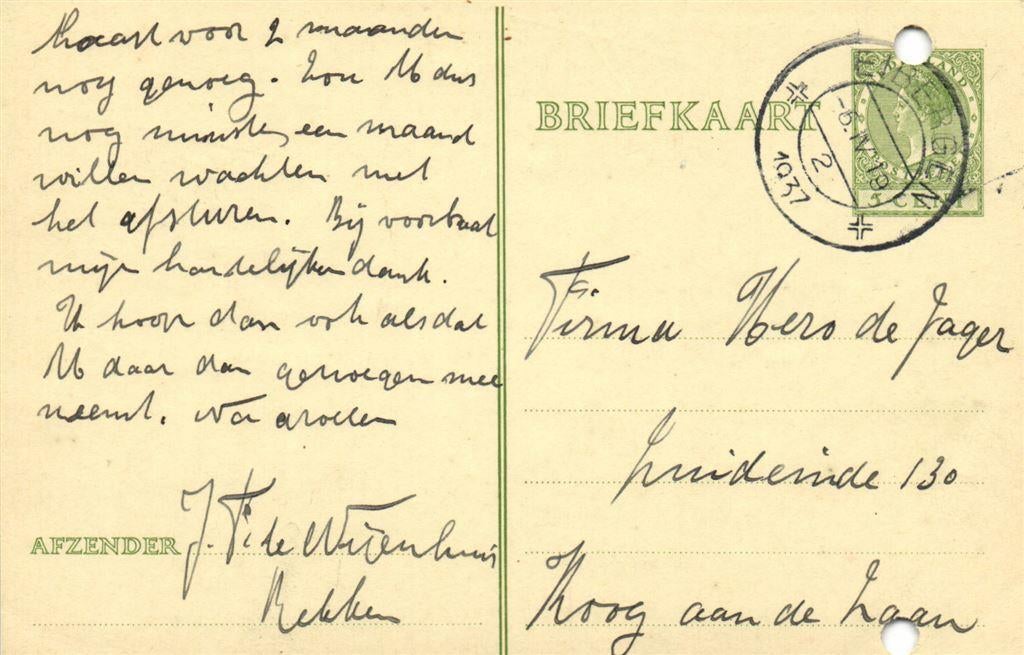 haast voor 2 maanden
nog genoeg. Zou U dus
nog minstens een maand
willen wachten met
het afsturen. Bij voorbaat
mijn hartelijken dank.
Ik hoop dan ook als dat
U daar dan genoegen mee
neemt.
AFZENDER J. F. te Wijenhuis
Rekken
BRIEFKAART
EIBERGEN
-6.IV.19
2
1937
5 CENT
Firma Hero de Jager
Zuideinde 130
Koog aan de Zaan